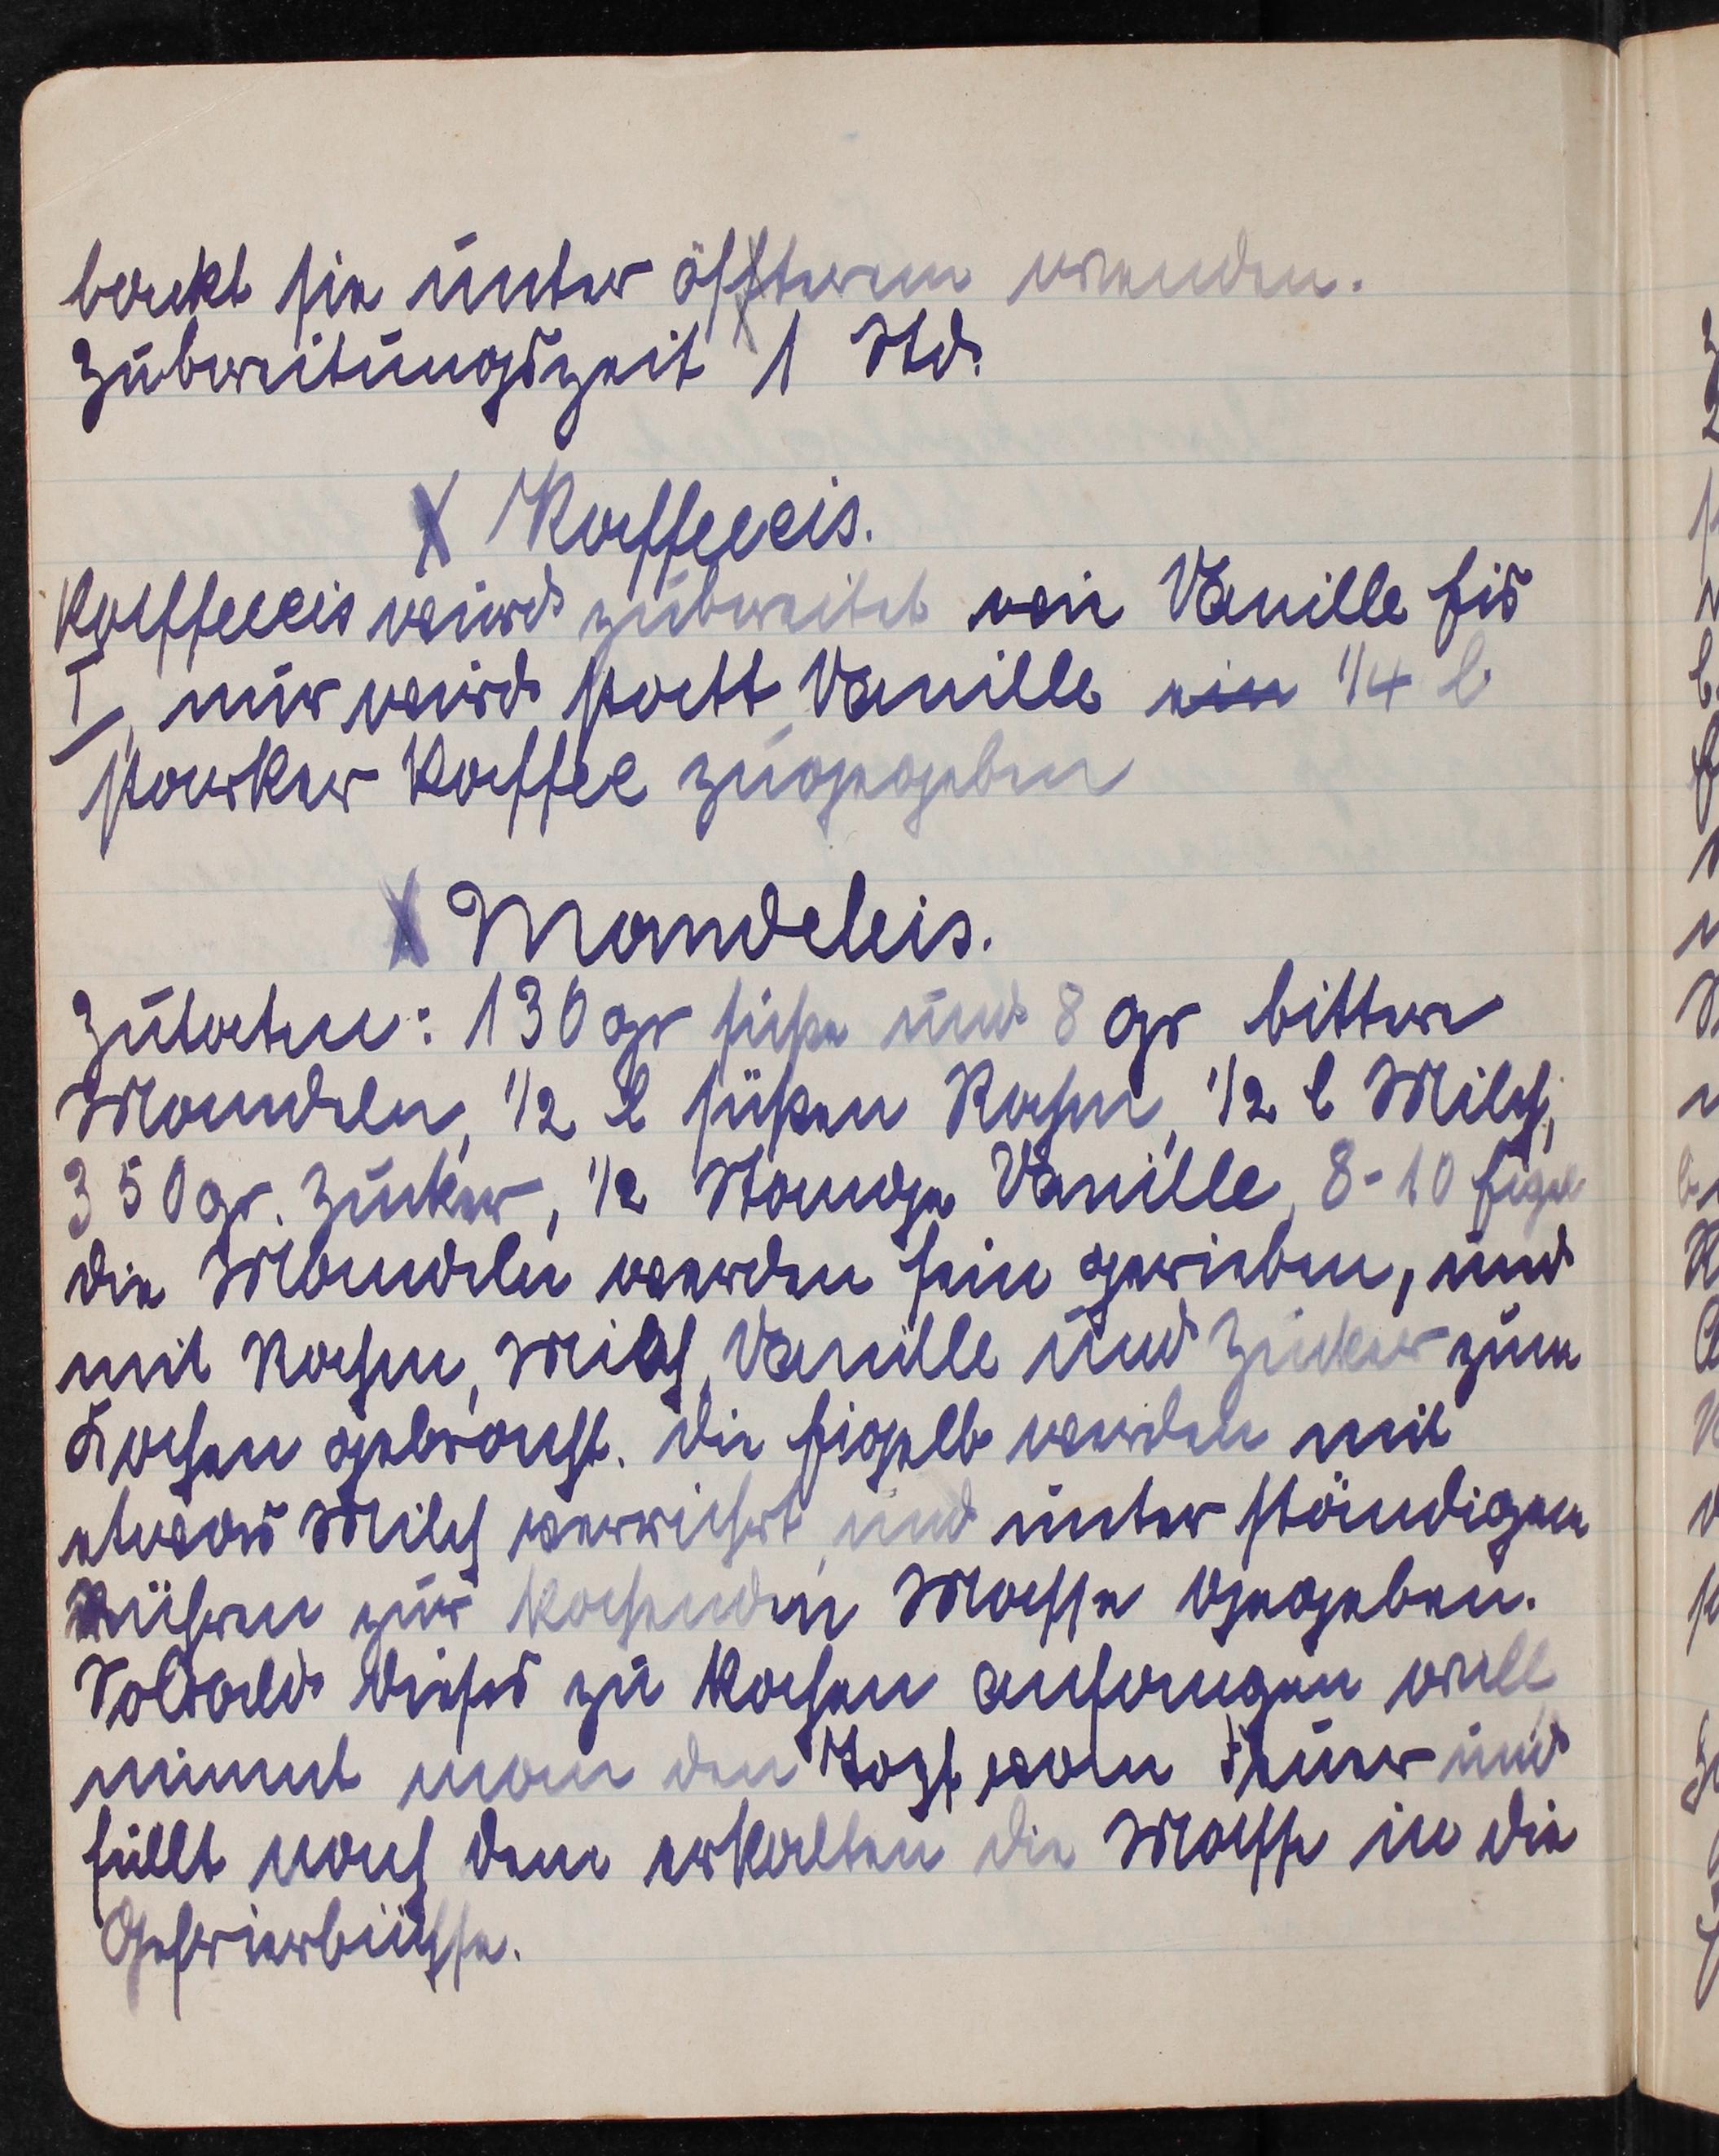 backt sie unter öfterem wenden.
Zubereitungszeit 1 Std.
X Kaffeeeis.
Kaffeeeis wird zubereitet wie Vanille Eis
I, nur wird statt Vanille ein 1/4 l
starker Kaffee zugegeben
X Mandeleis.
Zutaten: 130 gr süße und 8 gr bittere
Mandeln, 1/2 l süßen Rahm, 1/2 l Milch,
350 gr. Zucker, 1/2 Stange Vanille, 8-10 Eigel
die Mandeln werden fein gerieben, und
mit Rahm, Milch, Vanille und Zucker zum
Kochen gebracht. die Eigelb werden mit
etwas Milch verrührt, und unter ständigem
Rühren zur kochenden Masse gegeben.
Sobald dieses zu kochen anfangen will
nimmt man den Topf vom Feuer und
füllt nach dem erkalten die Masse in die
Gefrierbüchse.